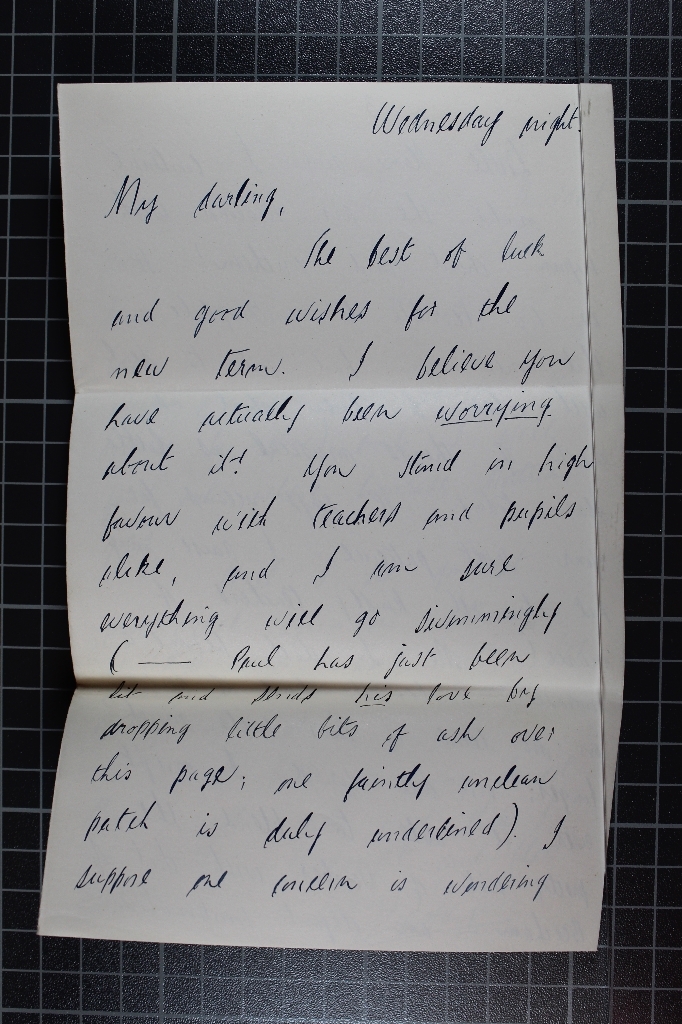 Wednesday night.
My darling,
The best of luck
and good wishes for the
new term. I believe you
have actually been worrying
about it! You stand in high
favour with teachers and pupils
alike, and I am sure
everything will go swimmingly
( — Paul has just been
lit and sends his love by
dropping little bits of ash over
this page; one faintly unclean
patch is duly underlined). I
suppose one concern is wondering